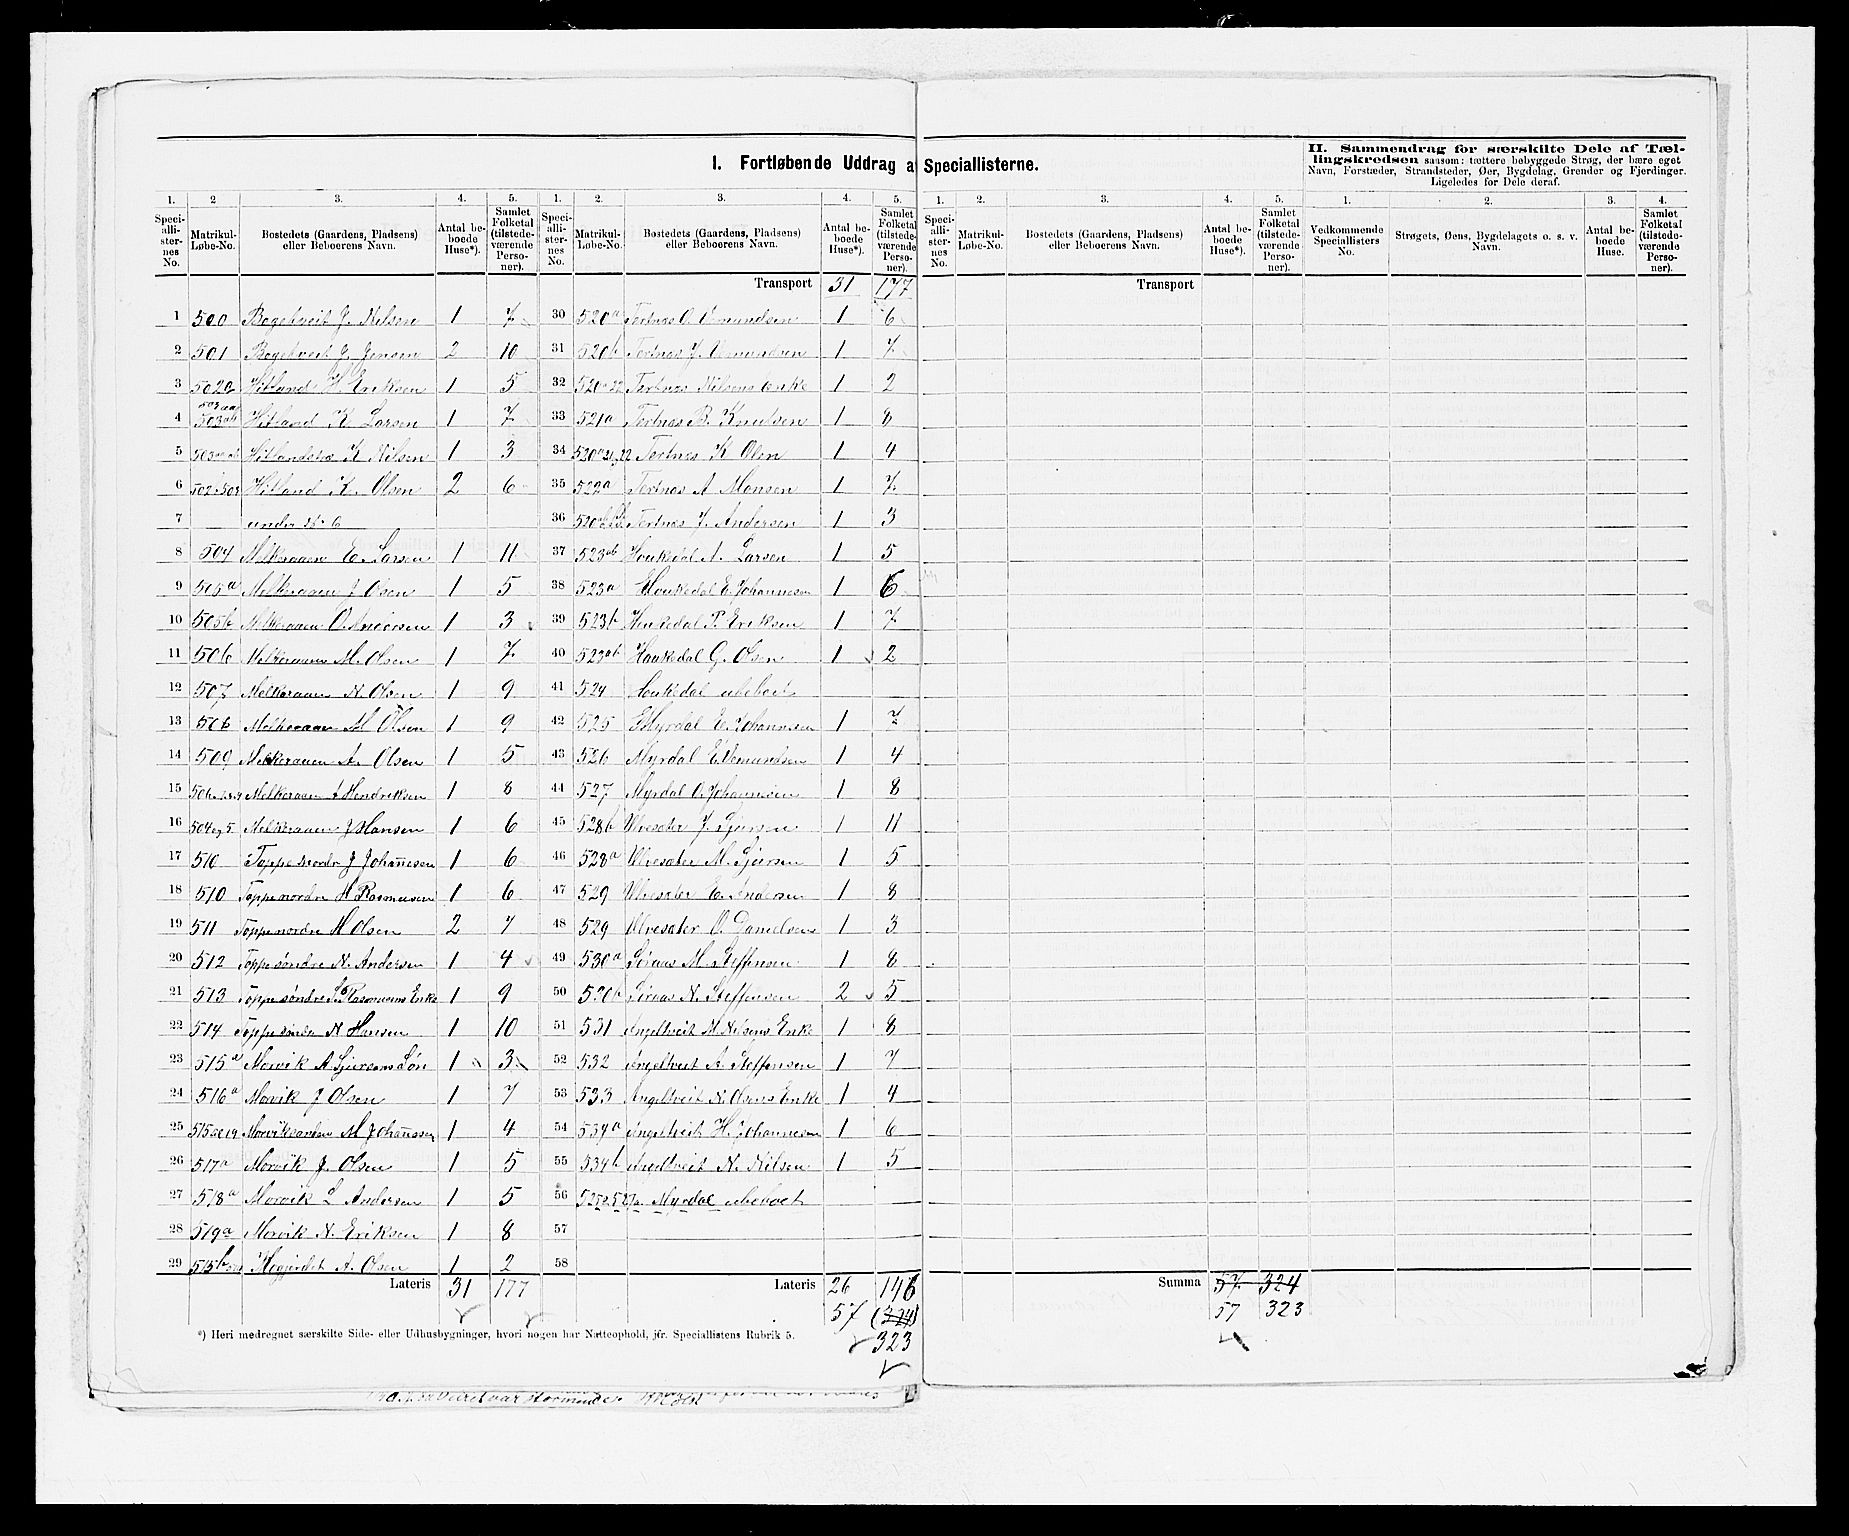 I. Fortløbende Uddrag af Speciallisterne.
II. Sammendrag for særskilte Dele af Tællingskredsen saasom: tættere bebyggede Strøg, der bære eget
Navn, Forstæder, Strandsteder, Øer, Bygdelag, Grender og Fjerdinger.
Ligeledes for Dele deraf.
1. 2 3. 4. 5. 1. 2. 3. 4. 5. 1. 2. 3. 4. 5. 1. 2. 3. 4.
Speciallisternes No. Matrikul-Løbe-No. Bostedets (Gaardens, Pladsens) eller Beboerens Navn. Antal beboede Huse*). Samlet Folketal (tilstedeværende Personer).
Speciallisternes No. Matrikul-Løbe-No. Bostedets (Gaardens, Pladsens) eller Beboerens Navn. Antal beboede Huse*). Samlet Folketal (tilstedeværende Personer).
Speciallisternes No. Matrikul-Løbe-No. Bostedets (Gaardens, Pladsens) eller Beboerens Navn. Antal beboede Huse*). Samlet Folketal (tilstedeværende Personer).
Vedkommende Speciallisters No. Strøgets, Øens, Bygdelagets o. s. v. Navn. Antal beboede Huse. Samlet Folketal (tilstedeværende Personer).
1 500 J. Nilsen 1 7
2 501 J. Jensen 2 10
3 502a Hitland H Eriksen 1 5
4 503ab Hitland K. Larsen 1 7
5 K Nilsen 1 3
6 502 503 Hitland K. Olsen 2 6
7 under No 6
8 504 Melkeraaen E. Larsen 1 11
9 505a Melkeraaen J Olsen 1 5
10 505b Melkeraaen O. Andersen 1 3
11 506 Melkeraaen M. Olsen 1 7
12 507 Melkeraaen N. Olsen 1 9
13 506 Melkeraaen M Olsen 1 9
14 509 Melkeraaen A. Olsen 1 5
15 Melkeraaen A Hendriksen 1 8
16 504 og 5 Melkeraaen J Hansen 1 6
17 510 Toppe nordre J Johannesen 1 6
18 510 Toppe nordre H Rasmusen 1 6
19 511 Toppe nordre H Olsen 2 7
20 512 Toppe søndre N. Andersen 1 4
21 513 Toppe søndre Rasmusens Enke 1 9
22 514 Toppe søndre N Hansen 1 10
23 515a Morvik A Sjursens Søn 1 3
24 516a Morvik J Olsen 1 7
25 M Johannesen 1 4
26 517a Morvik J. Olsen 1 5
27 518a Morvik L Andersen 1 5
28 519a Morvik N. Eriksen 1 8
29 515b A. Olsen 1 2
Lateris 31 177
Transport 31 177
30 520a Tertnes O. Amundsen 1 6
31 520b Tertnes J. Amundsen 1 7
32 Tertnes Nilsens Enke 1 2
33 521a Tertnes B. Knutsen 1 8
34 Tertnes K Olsen 1 4
35 522a Tertnes A Monsen 1 7
36 Tertnes J. Andersen 1 3
37 523ab Haukedal A. Larsen 1 5
38 523a Haukedal E. Johannesen 1 6
39 523b Haukedal P. Eriksen 1 7
40 523ab Haukedal G. Olsen 1 2
41 524 Haukedal ubeboet
42 525 Myrdal E. Johannesen 1 7
43 526 Myrdal E. Amundsen 1 4
44 527 Myrdal O. Johannesen 1 8
45 528b Ulvesæter J. Sjursen 1 11
46 528a Ulvesæter M. Sjursen 1 5
47 529 Ulvesæter E. Andersen 1 8
48 529 Ulvesæter O. Danielsen 1 3
49 530a Søraas M. Steffensen 1 8
50 530b Søraas N. Steffensen 2 5
51 531 Angeltveit M. Nilsens Enke 1 8
52 532 Angeltveit A. Steffensen 1 7
53 533 Angeltveit N. Olsens Enke 1 4
54 534a Angeltveit H. Johannesen 1 6
55 534b Angeltveit N. Nilsen 1 5
56 Myrdal ubeboet
57
58
Lateris 26 146
57 (324)
323
Transport
Summa 57 324
57 323
*) Heri medregnet særskilte Side- eller Udhusbygninger, hvori nogen har Natteophold, jfr. Speciallistens Rubrik 5.